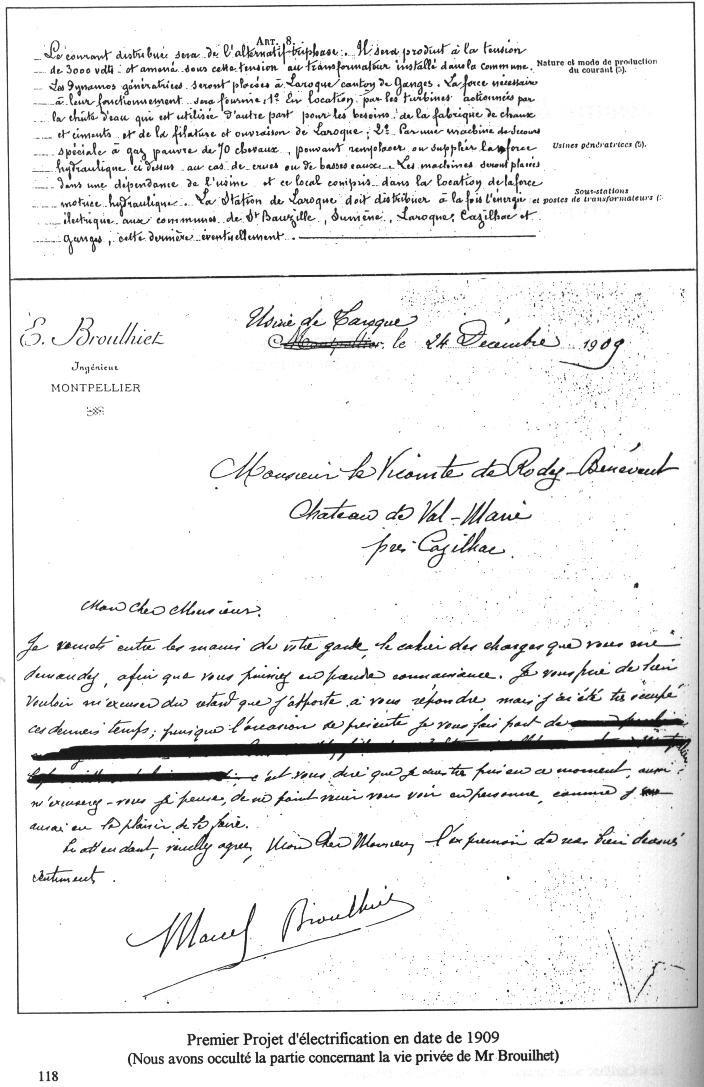 ART. 8.
Le courant distribué sera de l'alternatif triphasé. Il sera produit à la tension
de 3000 volts et amené sous cette tension au transformateur installé dans la commune.
Nature et mode de production
du courant (5).
Les dynamos génératrices seront placées à Laroque canton de Ganges. La force nécessaire
à leur fonctionnement sera fournie, 1º En location par les turbines actionnées par
la chute d'eau qui est utilisée d'autre part pour les besoins de la fabrique de chaux
et ciments et de la filature et ouvraison de Laroque; 2º Par une machine de secours
spéciale à gaz pauvre de 70 chevaux, pouvant remplacer ou suppléer la force
Usines génératrices (5).
hydraulique ci dessus au cas de crues ou de basses eaux. Les machines seront placées
dans une dépendance de l'usine et ce local compris dans la location de la force
motrice hydraulique. La Station de Laroque doit distribuer à la fois l'énergie
Sous-stations
et postes de transformateurs (
électrique aux communes de St Bauzille, Sumène, Laroque, Cazilhac et
Ganges, cette dernière éventuellement.
E. Broulhiet
Ingénieur
MONTPELLIER
Usine de Laroque
Montpellier, le 24 Décembre 1909
Monsieur le Vicomte de Rodez-Bénévent
Chateau de Val-Marie
près Cazilhac
Mon cher Monsieur.
Je remets entre les mains de votre garde, le cahier des charges que vous me
demandez, afin que vous puissiez en prendre connaissance. Je vous prie de bien
vouloir m'excuser du retard que j'apporte à vous répondre, mais j'ai été très occupé
ces derniers temps; puisque l'occasion se présente je vous fais part de
c'est vous dire que je suis très pris en ce moment, aussi
m'excuserez-vous je pense, de ne point venir vous voir en personne, comme j'
aurai eu le plaisir de le faire.
En attendant, veuillez agréer, Mon Cher Monsieur, l'expression de mes bien dévoués
sentiments.
Marcel Broulhiet
Premier Projet d'électrification en date de 1909
(Nous avons occulté la partie concernant la vie privée de Mr Brouilhet)
118